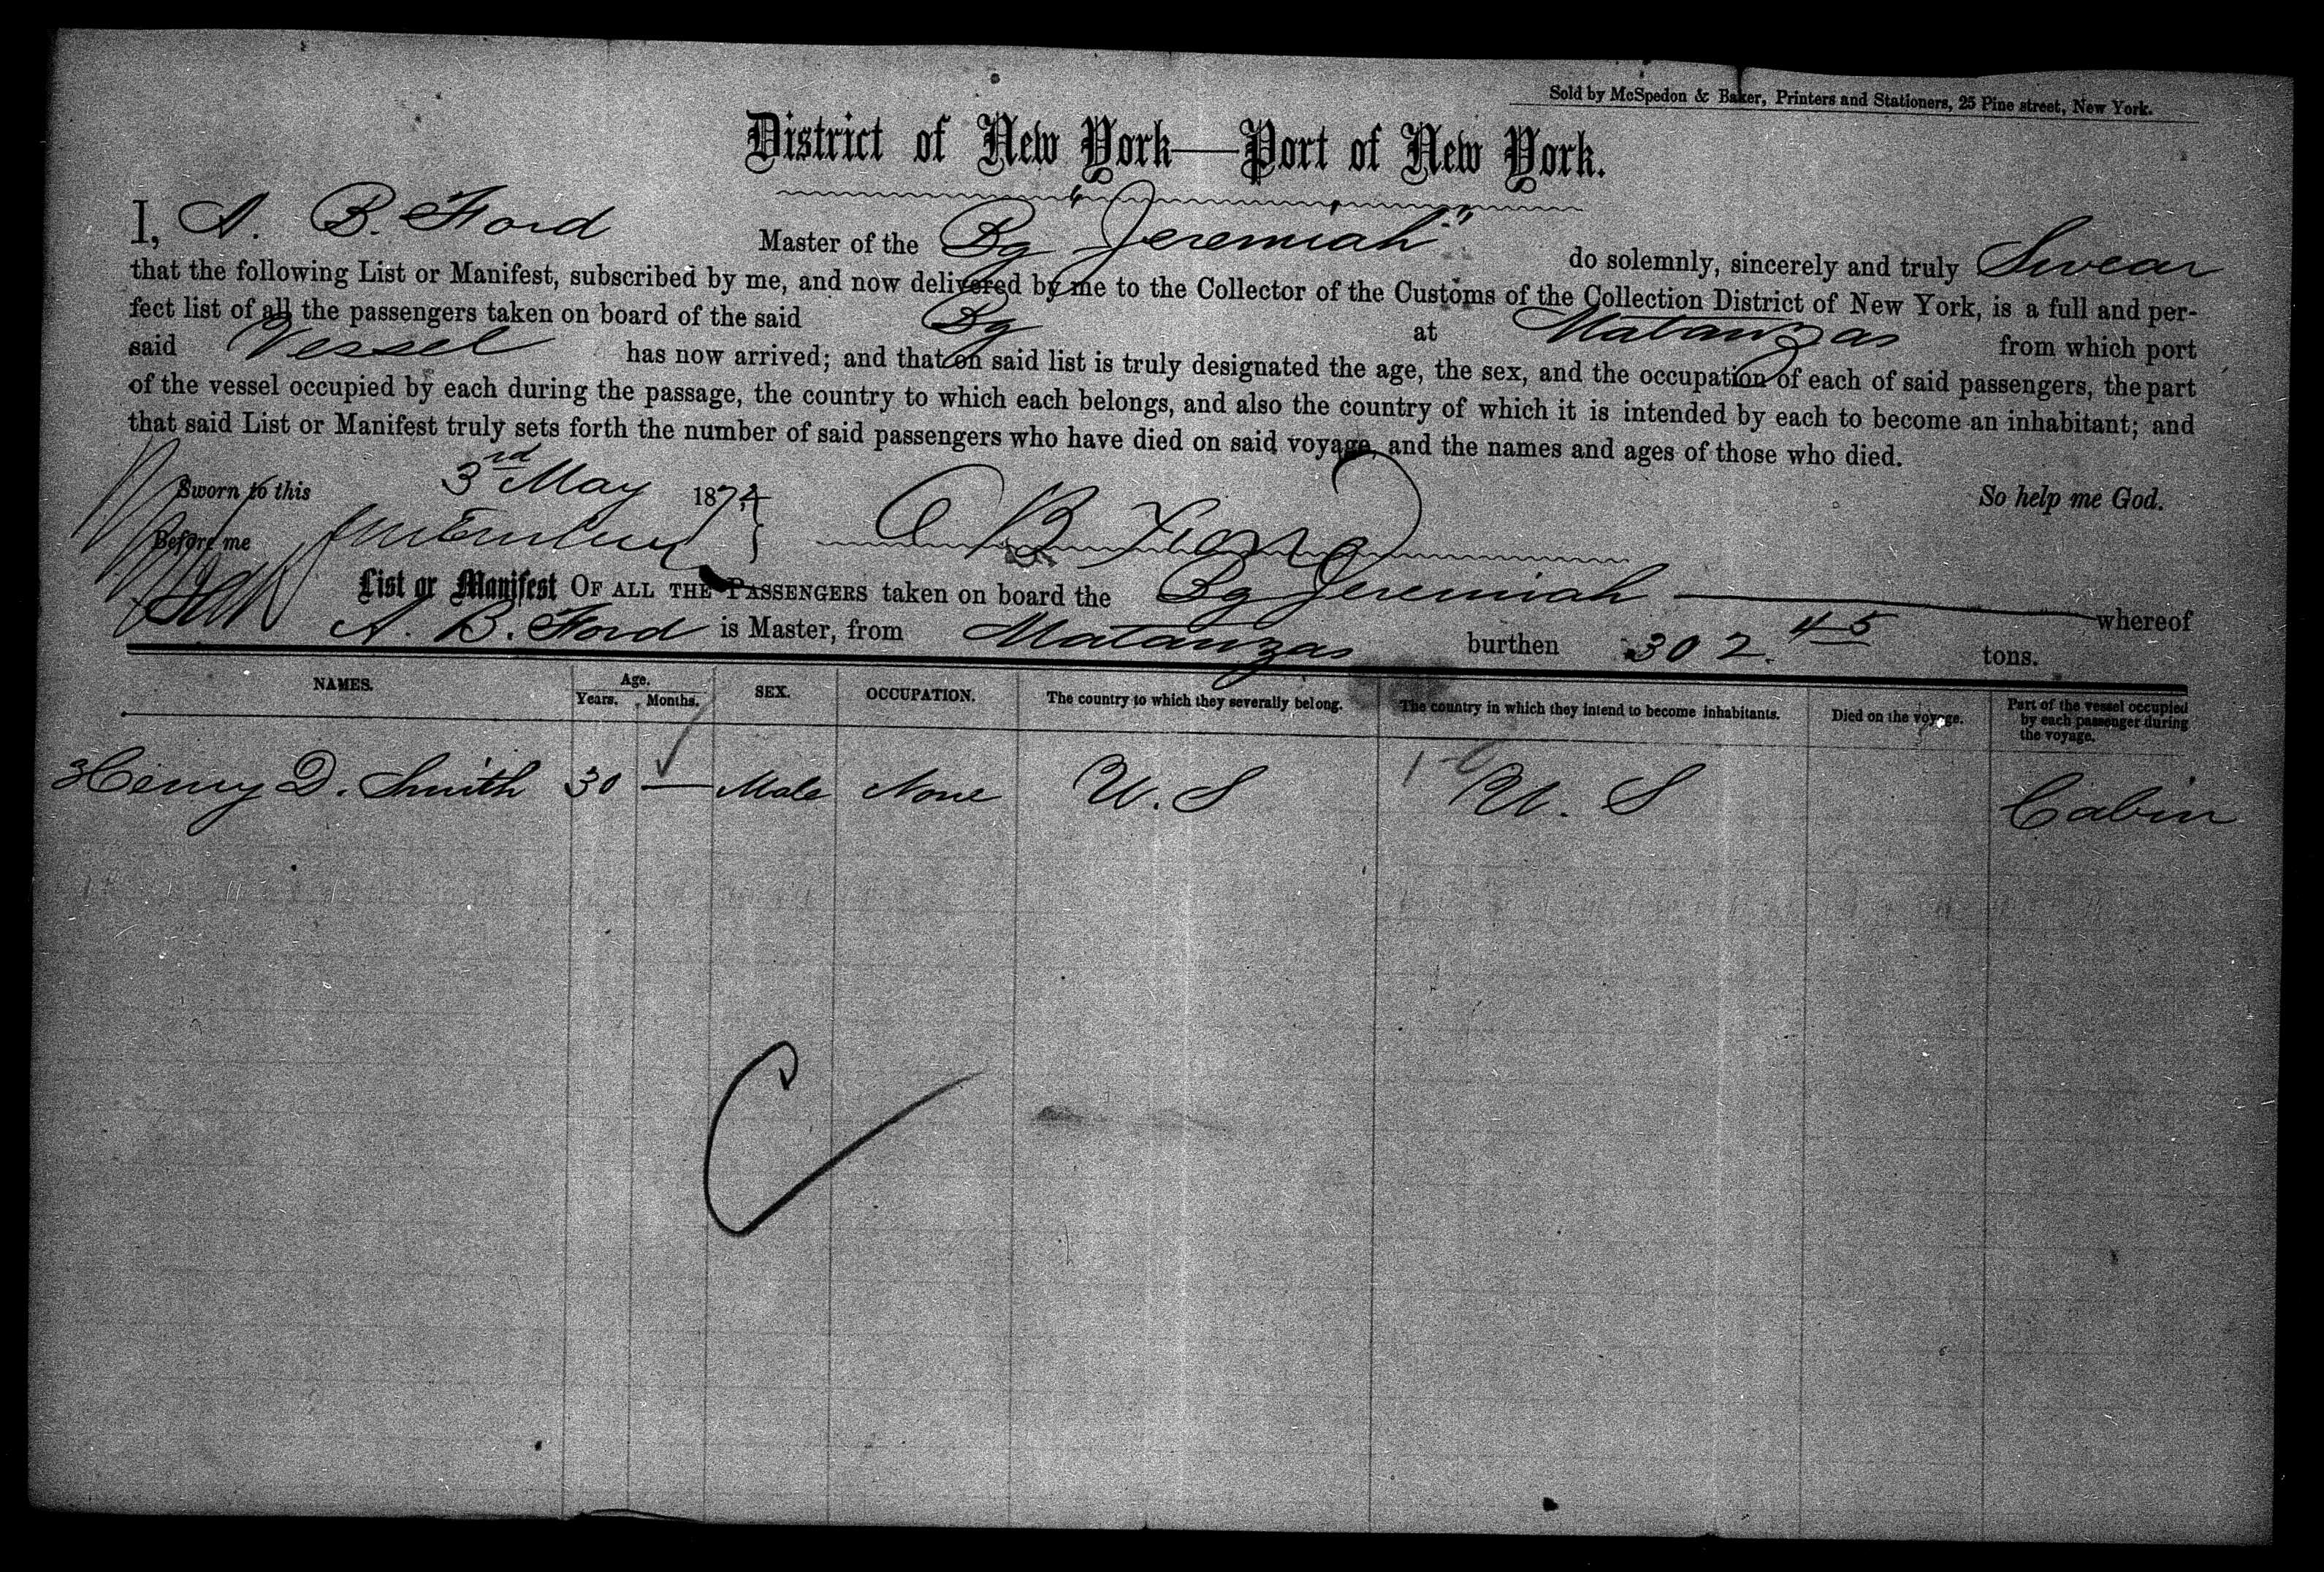 Sold by McSpedon & Baker, Printers and Stationers, 25 Pine street, New York.
District of New York—Port of New York.
I, A. B. Ford Master of the Bg "Jeremiah" do solemnly, sincerely and truly Swear
that the following List or Manifest, subscribed by me, and now delivered by me to the Collector of the Customs of the Collection District of New York, is a full and per-
fect list of all the passengers taken on board of the said Bg at Matanzas from which port
said Vessel has now arrived; and that on said list is truly designated the age, the sex, and the occupation of each of said passengers, the part
of the vessel occupied by each during the passage, the country to which each belongs, and also the country of which it is intended by each to become an inhabitant; and
that said List or Manifest truly sets forth the number of said passengers who have died on said voyage, and the names and ages of those who died.
Sworn to this 3rd May 1874 So help me God.
Before me A B Ford
List or Manifest OF ALL THE PASSENGERS taken on board the Bg Jeremiah whereof
A. B. Ford is Master, from Matanzas burthen 302. 45 tons.
NAMES. Age. Years. Months. SEX. OCCUPATION. The country to which they severally belong. The country in which they intend to become inhabitants. Died on the voyage. Part of the vessel occupied by each passenger during the voyage.
Henry D. Smith 30 — Male None U. S U. S Cabin